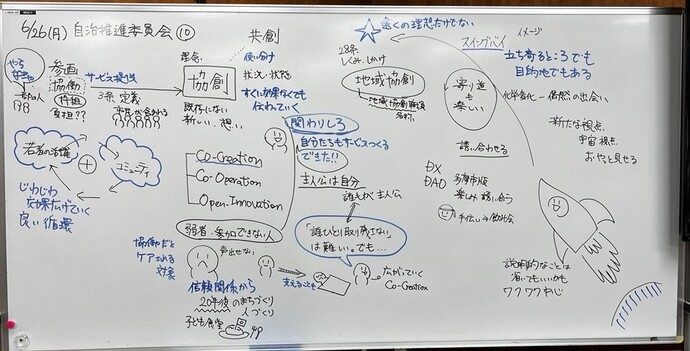 6/26(月) 自治推進委員会 ⑩
参画
協働
サービス提供
3条 定義
市民が含まれる
若者の活躍
+
コミュニティ
じわじわ
効果広げていく
良い循環
共創
理念
使い分け
状況・状態
協創
すぐに効果なくても
伝わっていく
既存にない
新しい、想い
関わりしろ
自分たちもサービスつくる
できた!!
Co-Creation
Co-Operation
Open Innovation
主人公は自分
誰もが主人公
弱者・参加できない人
声出せない
協働だと
ケアされる
対象
信頼関係から
20年後のまちづくり
人づくり
子ども食堂
支えることも
「誰ひとり取り残さない」
は難しい。でも…
広がっていく
Co-Creation
遠くの理想だけでない
28条
しくみ、しかけ
地域協創
スイングバイ
イメージ
立ち寄るところでも
目的地でもある
寄り道
も
楽しい
化学変化-偶然の出会い
新たな視点
宇宙視点
誘い合わせる
DX
DAO
多摩市版
楽しみ 誘い合う
説明的なことは
省いてもいいかも
ワクワク感じ